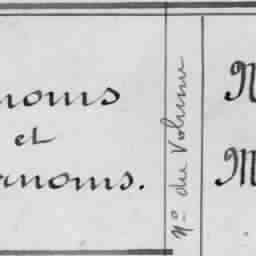 noms
et
rnoms.
N° du Volume
N
M